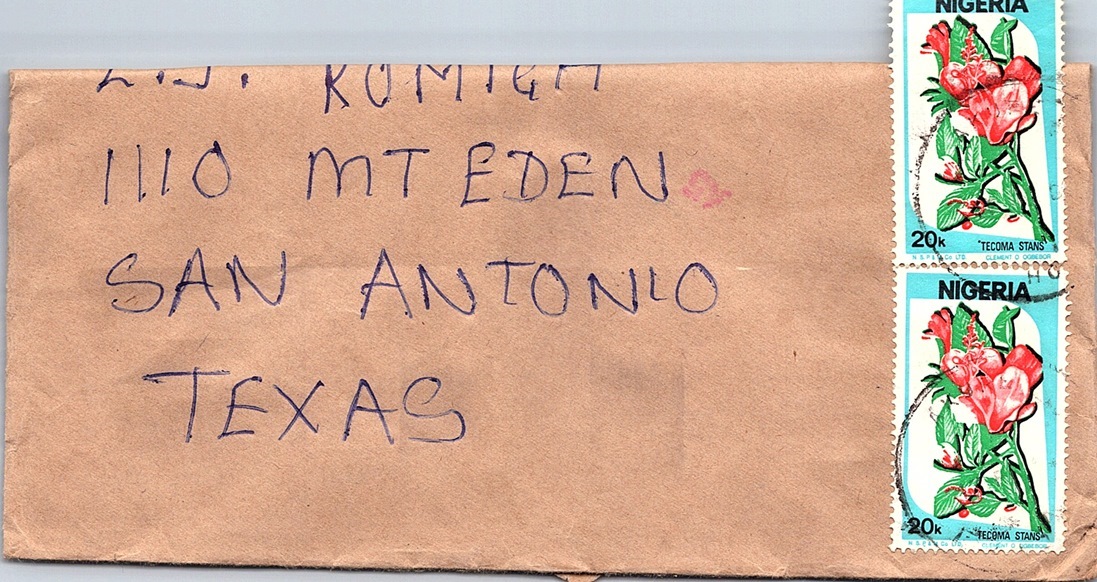 ROMIGH
1110 MT EDEN
SAN ANTONIO
TEXAS
NIGERIA
20k
"TECOMA STANS"
N.S.P.& M. Co. LTD.
CLEMENT O. OGBEBOR
NIGERIA
20k
"TECOMA STANS"
N.S.P.& M. Co. LTD.
CLEMENT O. OGBEBOR